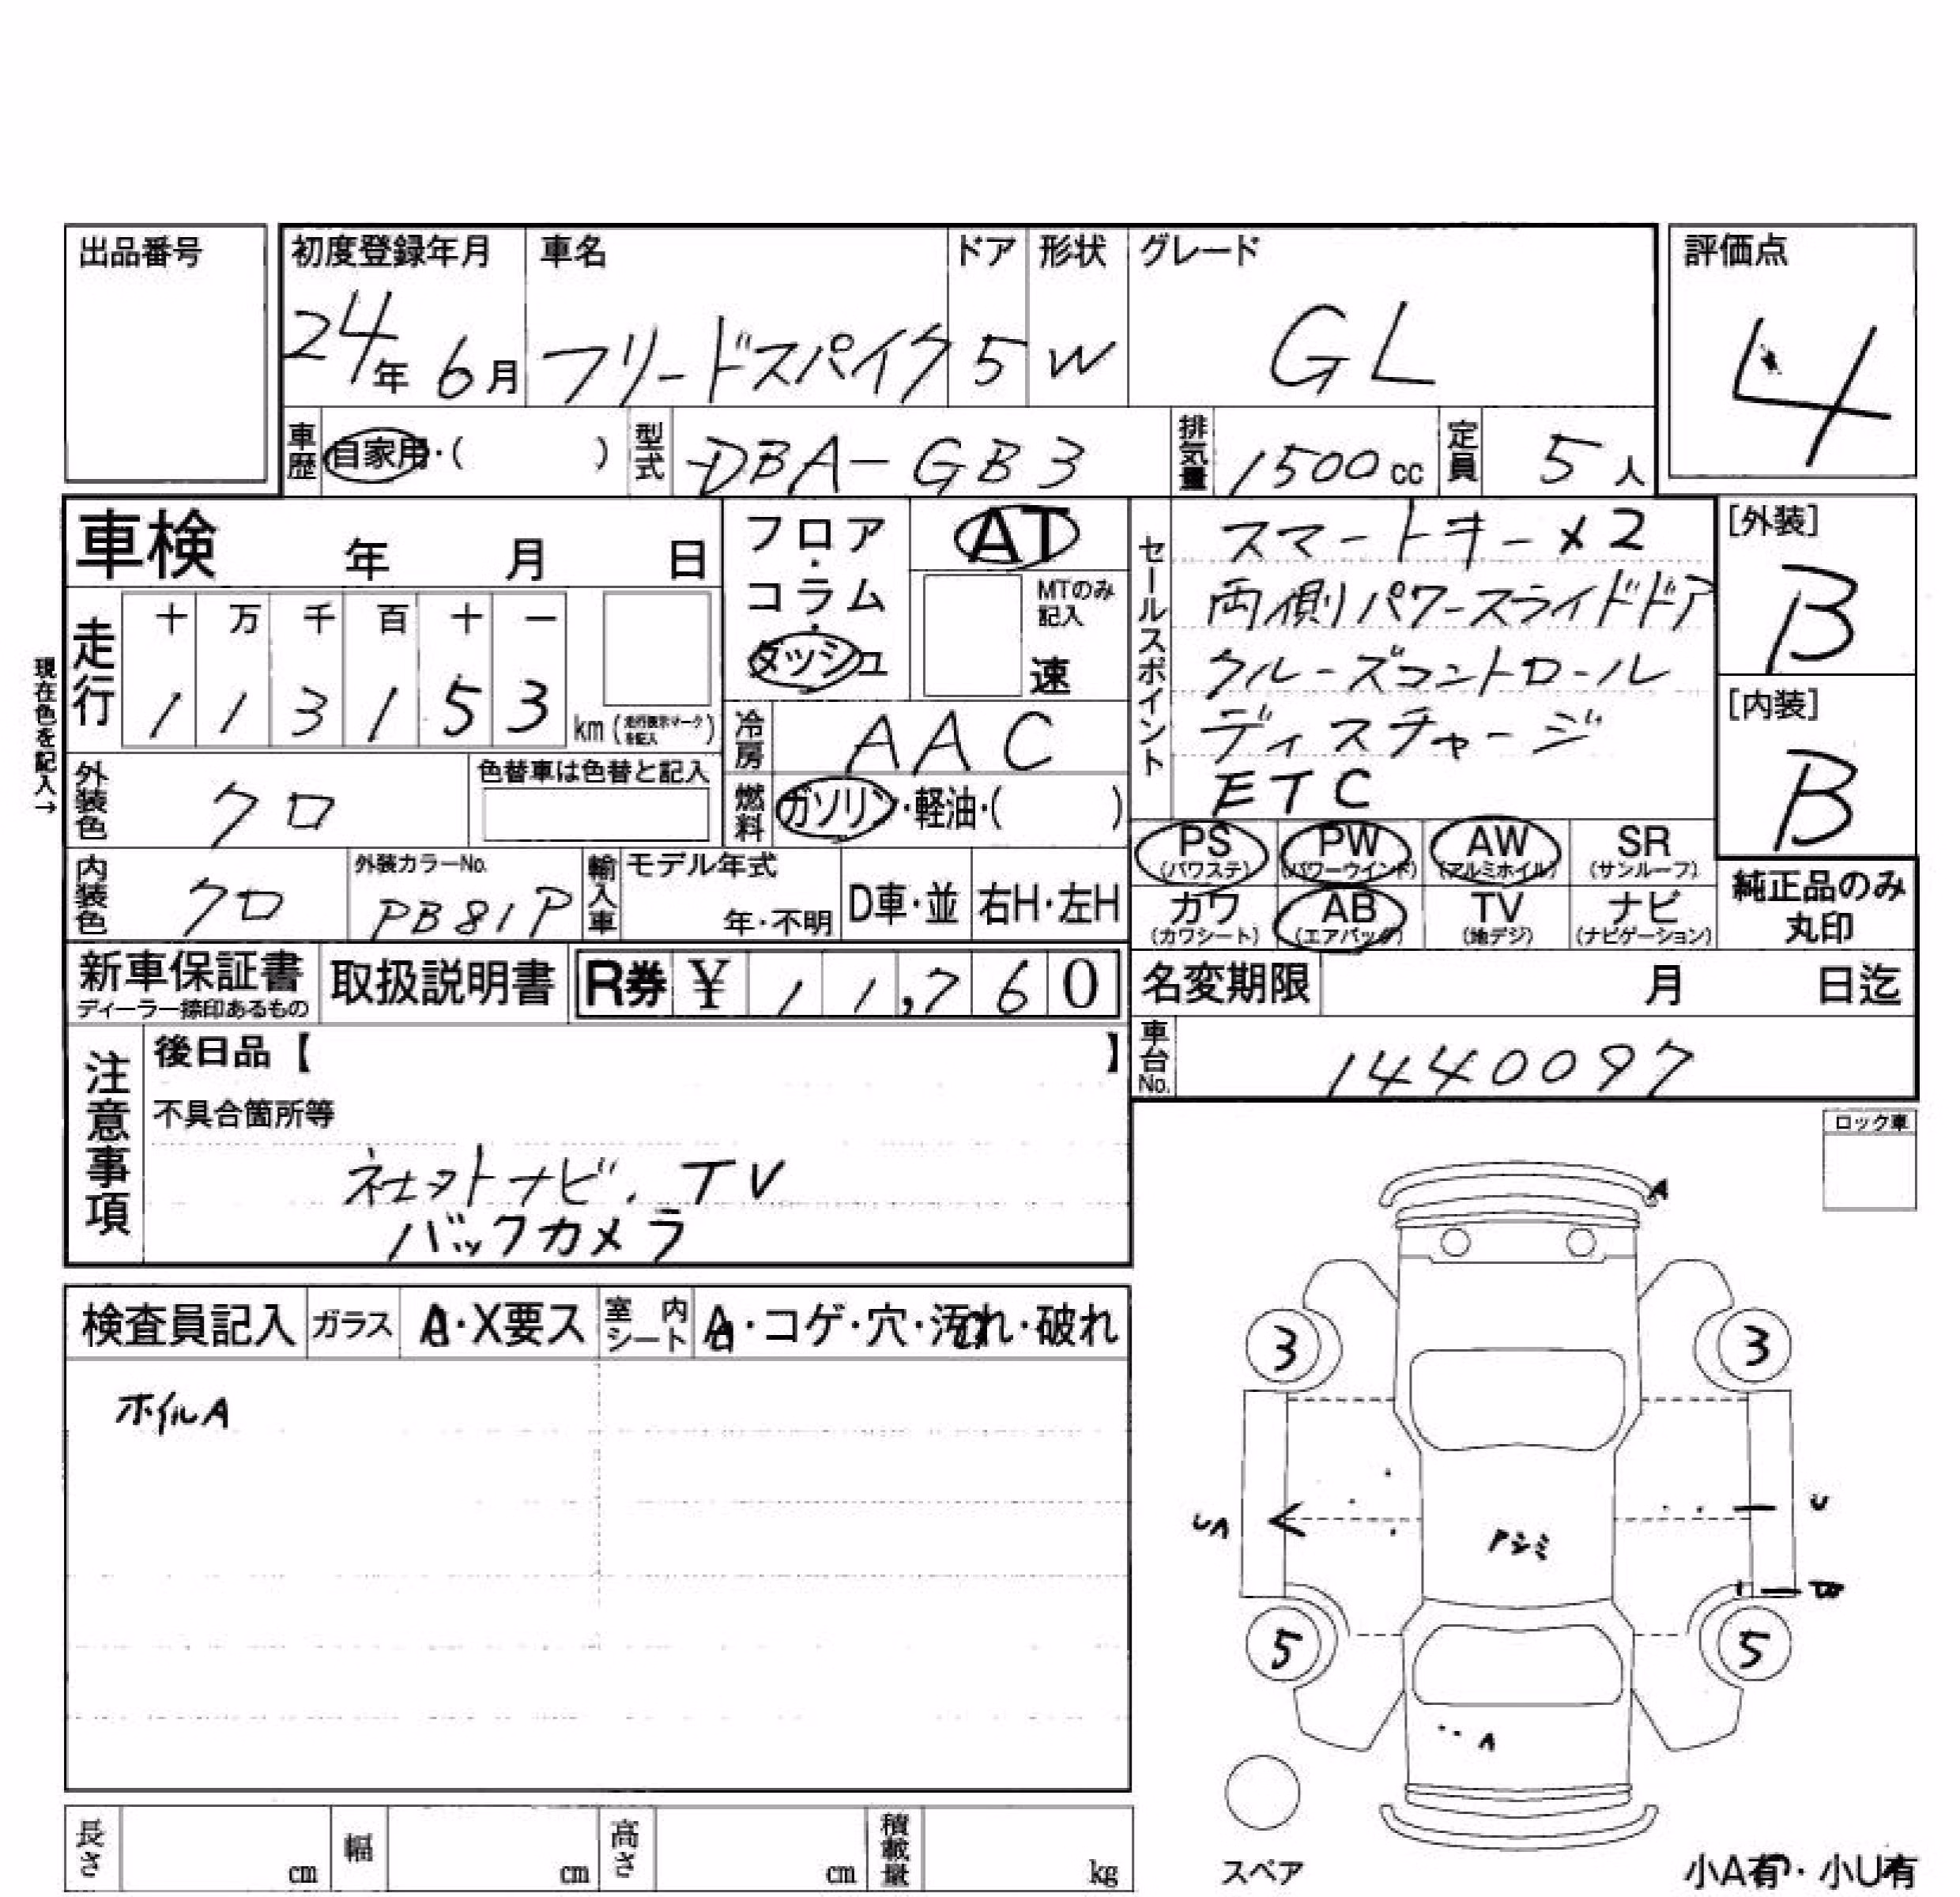 出品番号
初度登録年月 車名 ドア 形状 グレード 評価点
24年 6月 フリードスパイク 5 W GL 4
車歴 自家用・( ) 型式 DBA-GB3 排気量 1500cc 定員 5人
車検 年 月 日
フロア・コラム・ダッシュ
AT
MTのみ記入
速
セールスポイント
スマートキー×2
両側パワースライドドア
クルーズコントロール
ディスチャージ
ETC
[外装]
B
[内装]
B
現在色を記入→
走行
十 万 千 百 十 一
1 1 3 1 5 3 km (走行表示マークを記入)
冷房 AAC
外装色 クロ
色替車は色替と記入
燃料 ガソリン・軽油・( )
PS (パワステ) PW (パワーウインド) AW (アルミホイル) SR (サンルーフ)
カワ (カワシート) AB (エアバッグ) TV (地デジ) ナビ (ナビゲーション)
純正品のみ
丸印
内装色 クロ
外装カラーNo. PB81P
輸入車 モデル年式 年・不明 D車・並 右H・左H
新車保証書
ディーラー捺印あるもの
取扱説明書
R券 ¥ 11,760
名変期限 月 日迄
車台No. 1440097
注意事項
後日品【 】
不具合箇所等
ネットナビ.TV
バックカメラ
ロック車
検査員記入 ガラス A・X要ス 室内シート A・コゲ・穴・汚れ・破れ
ホイルA
A
3 3
UA U
アシミ
5 5
A
スペア
小A有・小U有
長さ cm 幅 cm 高さ cm 積載量 kg